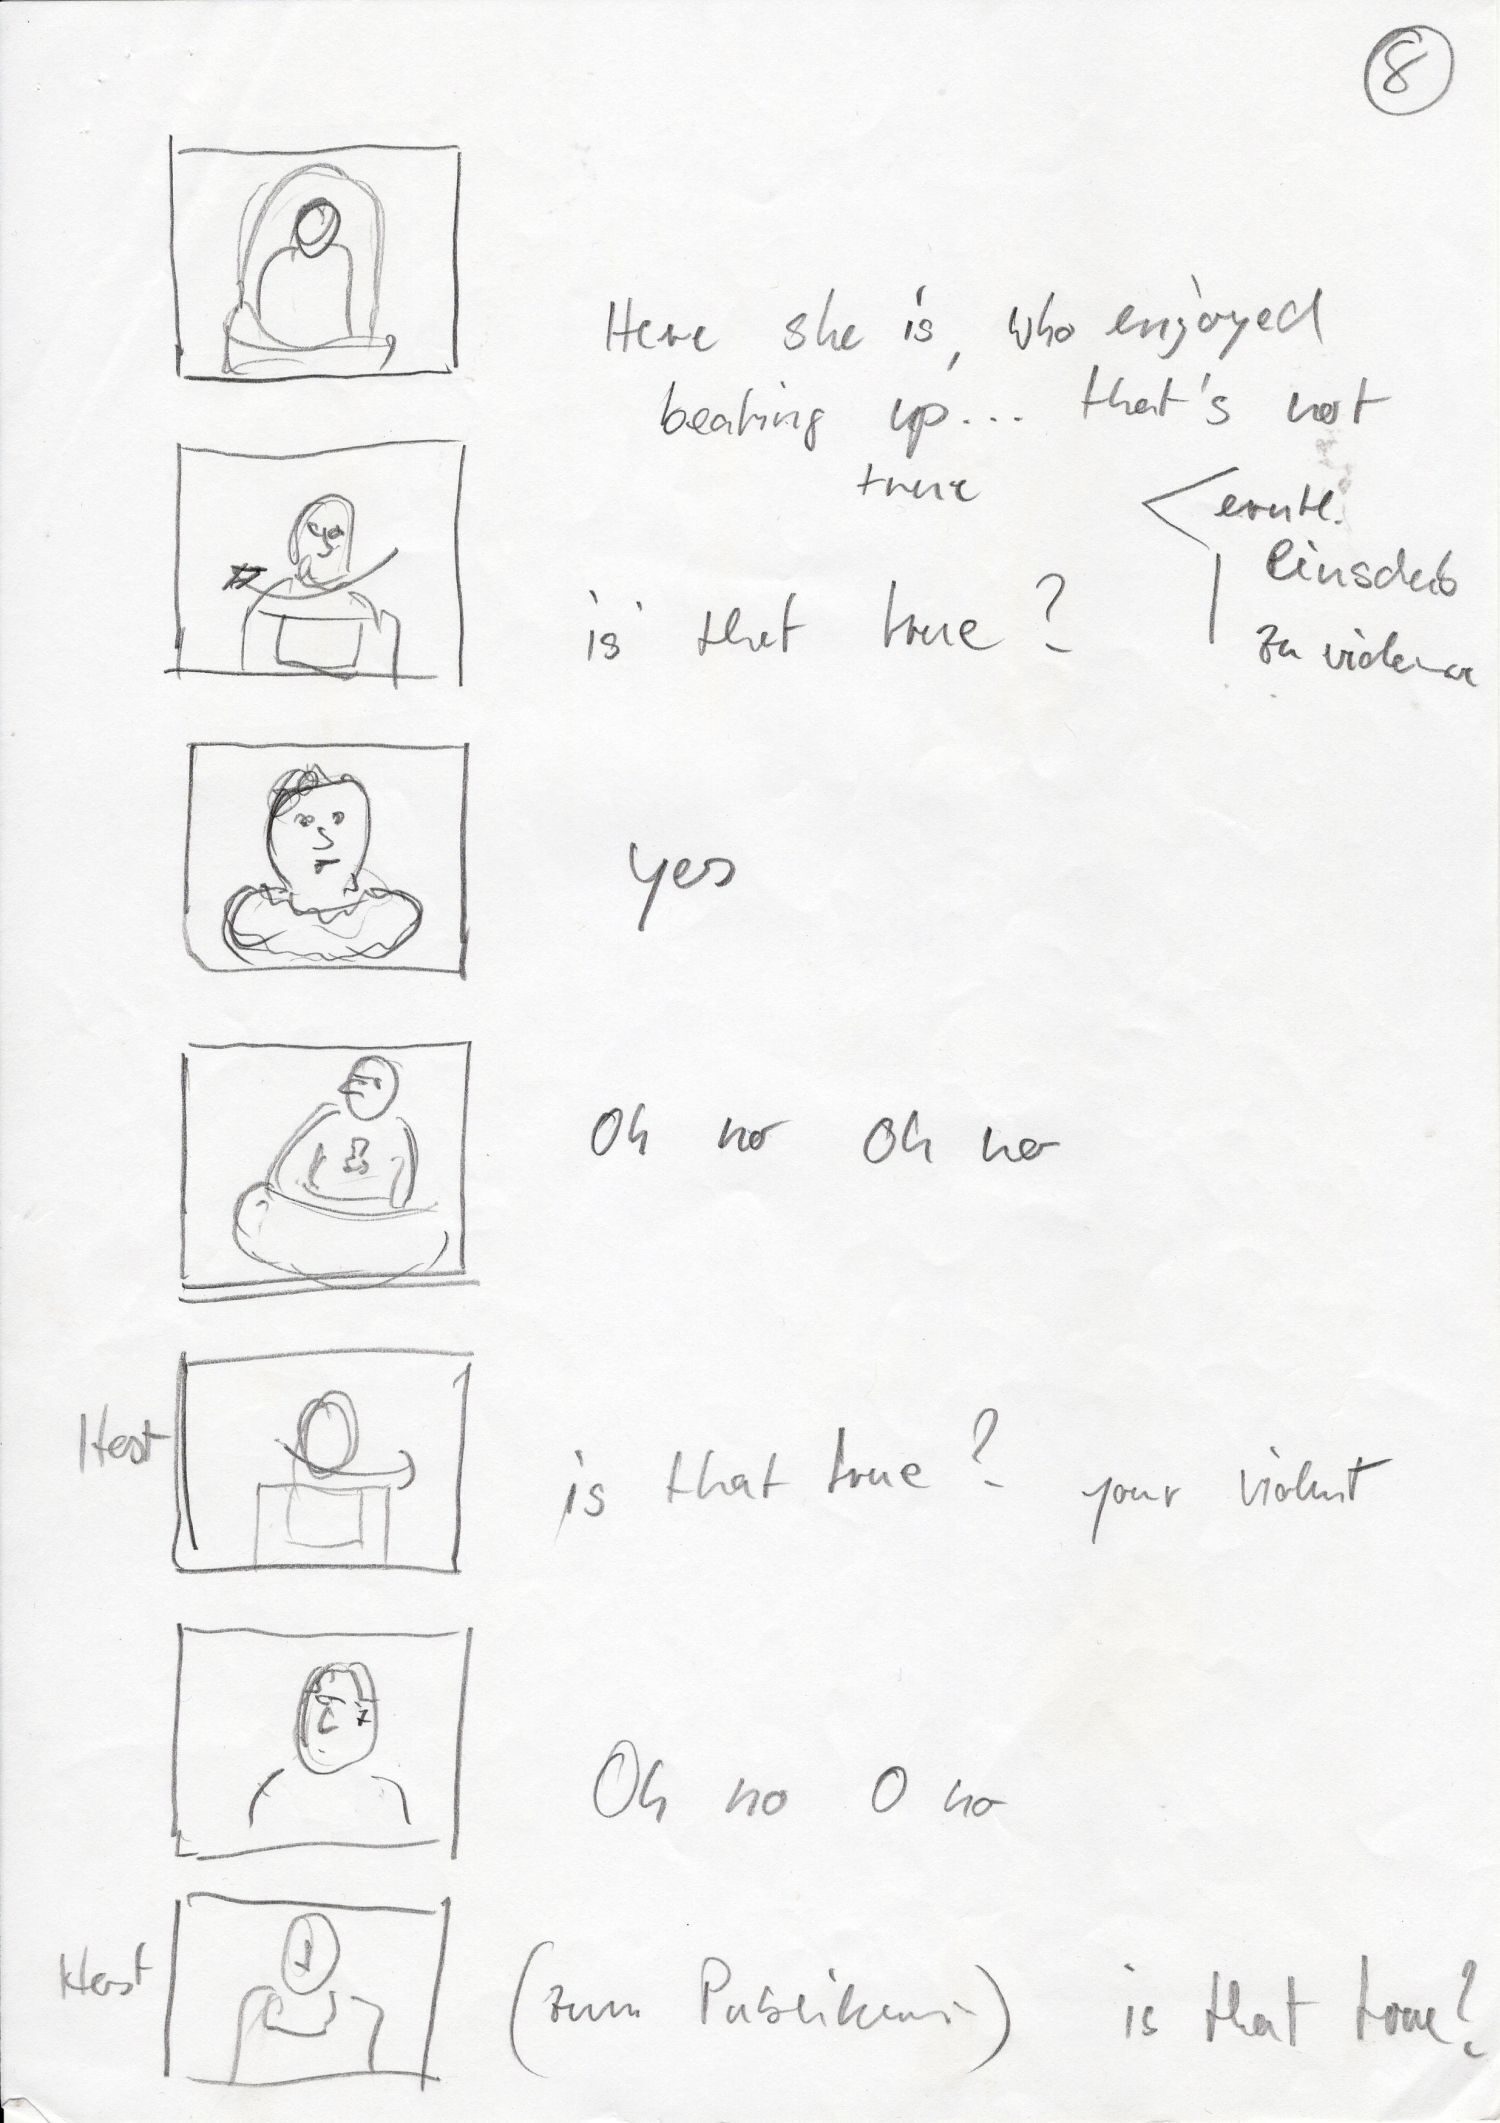 8
Here she is, who enjoyed
beating up... that's not
true
< eventl.
Einschub
zu violence
is that true?
yes
Oh no Oh no
Host
is that true? your violent
Oh no O no
Host
(zum Publikum) is that true?